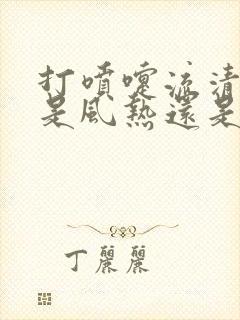 打噴嚏流清
是風熱還是
丁麗麗